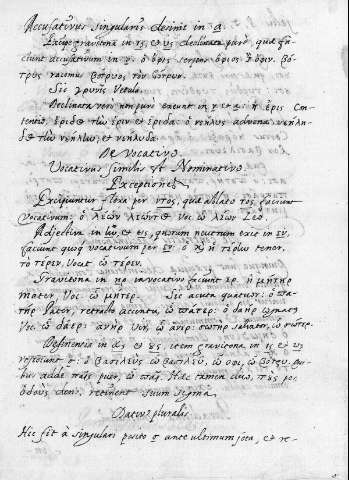 Accusativus singularis desinit in α.
Excipe gravitona in ις et υς declinata pure, quae fa-
ciunt accusativum in ν. ὁ ὄφις serpens ὄφιος τὸν ὄφιν. βό-
τρυς racemus βότρυος τὸν βότρυν.
Sic γραῦς Vetula.
Declinata vero non pure exeunt in ν et α: ἡ ἔρις Con-
tentio, ἔριδος τὴν ἔριν et ἔριδα: ὁ νέηλυς advena, νεήλυ-
δος τὸν νέηλυν, et νεήλυδα.
De Vocativo
Vocativus similis est Nominativo
Exceptiones
Excipiuntur flexa per ντος, quae ablato τος faciunt
Vocativum: ὁ λέων λέοντος Voc ὦ λέον Leo.
Adjectiva in ην, et εις, quorum neutrum exit in εν,
faciunt quoque vocativum per εν. ὁ καὶ ἡ τέρην tener,
τὸ τέρεν, Vocat ὦ τέρεν.
Gravitona in ηρ in vocativo faciunt ερ. ἡ μήτηρ
mater, Voc. ὦ μῆτερ. Sic acuta quatuor: ὁ πα-
τὴρ Pater, retracto accentu, ὦ πάτερ: ὁ δαὴρ
Voc. ὦ δᾶερ: ἀνὴρ vir, ὦ ἄνερ: σωτὴρ salvator, ὦ σῶτερ.
Desinentia in ευς, item gravitona in ις et υς
ς: ὁ βασιλεὺς ὦ βασιλεῦ, ὦ ὄφι, ὦ βότρυ.
bus adde παῖς puer, ὦ παῖ. Haec tamen duo, πούς pes
ὀδούς dens, retinent suum sigma.
Dativus pluralis
Hic fit à singulari posito σ ante ultimum jota, et re-